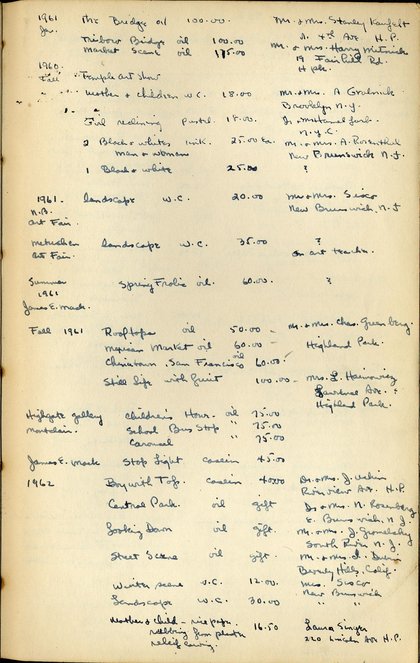 1961 The Bridge oil 100.00. Mr. & Mrs. Stanley
Jr. N. 4th Ave H.P.
Bridge oil 100.00 Mr. & Mrs. Harry
Market Scene oil 175.00 19 Fair Rd.
1960 H. Pk.
Fall Temple Art Show
Mother & Children W.C. 18.00 Mr. & Mrs. A
Brooklyn N.Y.
Girl reclining Pastel 15.00
N.Y.C.
2 Black & whites ink. 25.00 ea. Mr. & Mrs. A. Rosenthal
man & woman New Brunswick N.J.
1 Black & white 25.00 ?
1961. Landscape W.C. 20.00 Mr & Mrs. Sisco
N.B. New Brunswick, N.J
Art Fair.
Metuchen Landscape W.C. 35.00 ?
Art Fair. an art teacher.
Summer Spring Frolic oil. 60.00 ?
1961
James E. Mack.
Fall 1961 Rooftops oil 50.00 - Mr. & Mrs. Chas. Greenberg.
Mexican Market oil 60.00 - Highland Park.
Chinatown, San Francisco oil 60.00
Still life with fruit 100.00 - Mrs. L.
Lawrence Ave.
Highland Park.
Highgate Gallery Children's Hour. oil 75.00
Montclair. School Bus Stop " 75.00
Carousel " 75.00
James E. Mack Stop Light casein 45.00
1962 Boy with Top. casein 40.00 Dr. & Mrs. J.
Riverview Ave. H.P.
Central Park. oil gift Dr & Mrs. N. Rosenberg
E. Brunswick, N.J.
Looking Down oil gift. Mr. & Mrs. J.
South River N.J.
Street Scene oil gift. Mr. & Mrs. I.
Beverly Hills, Calif.
Winter scene W.C. 12.00. Mrs. Sisco
New Brunswick
Landscape W.C. 30.00 " "
Mother & Child - rice paper 16.50 Laura Singer
rubbing from plaster 220 Lincoln Ave H.P.
relief carving.